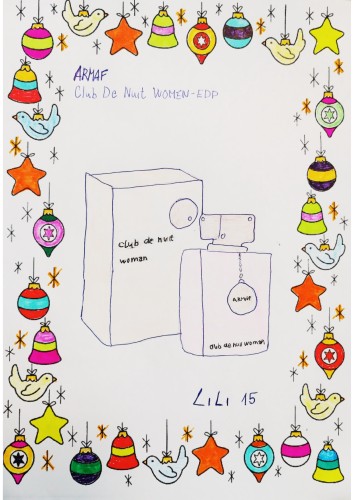 ARMAF
Club De Nuit WOMEN-EDP
club de nuit
woman
armaf
club de nui women
LiLi 15